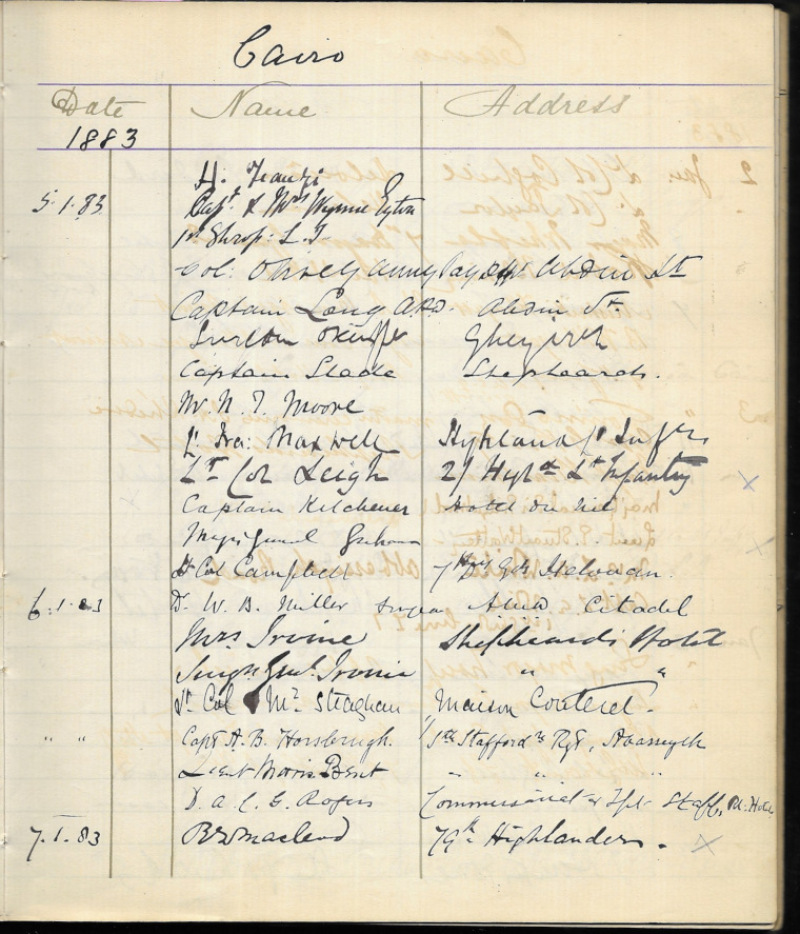 Cairo
Date Name Address
1883
H.
5.1.83 Capt & Mrs Wynne Eyton
1st Shrop: L.I.
Col: Olivey Army Pay Dept Abdin St
Captain Long A.P.D. Abdin St.
Surgeon Ghezireh
Captain Slade Shepheards.
Mr N. T. Moore
Lt. Fra: Maxwell Highland Lt Inf
Lt Col Leigh 2/ High'd Lt Infantry
Captain Kitchener Hotel du Nil
Major General Graham
Lt Col Campbell Helouan
6.1.83 Dr. W. B. Miller Surgeon Citadel
Mrs Irvine Shepheards Hotel
Surgn Genl. Irvine " "
Lt Col & Mrs Maison Couteret.
" " Capt A. B. Horsbrugh. 1 Sth Stafford re Rgt, Abassiyeh
Lieut Morris Bent " " "
D. A. C. G. Rogers Commissariat & Tpt Staff,
7.1.83 Macleod 79th Highlanders.